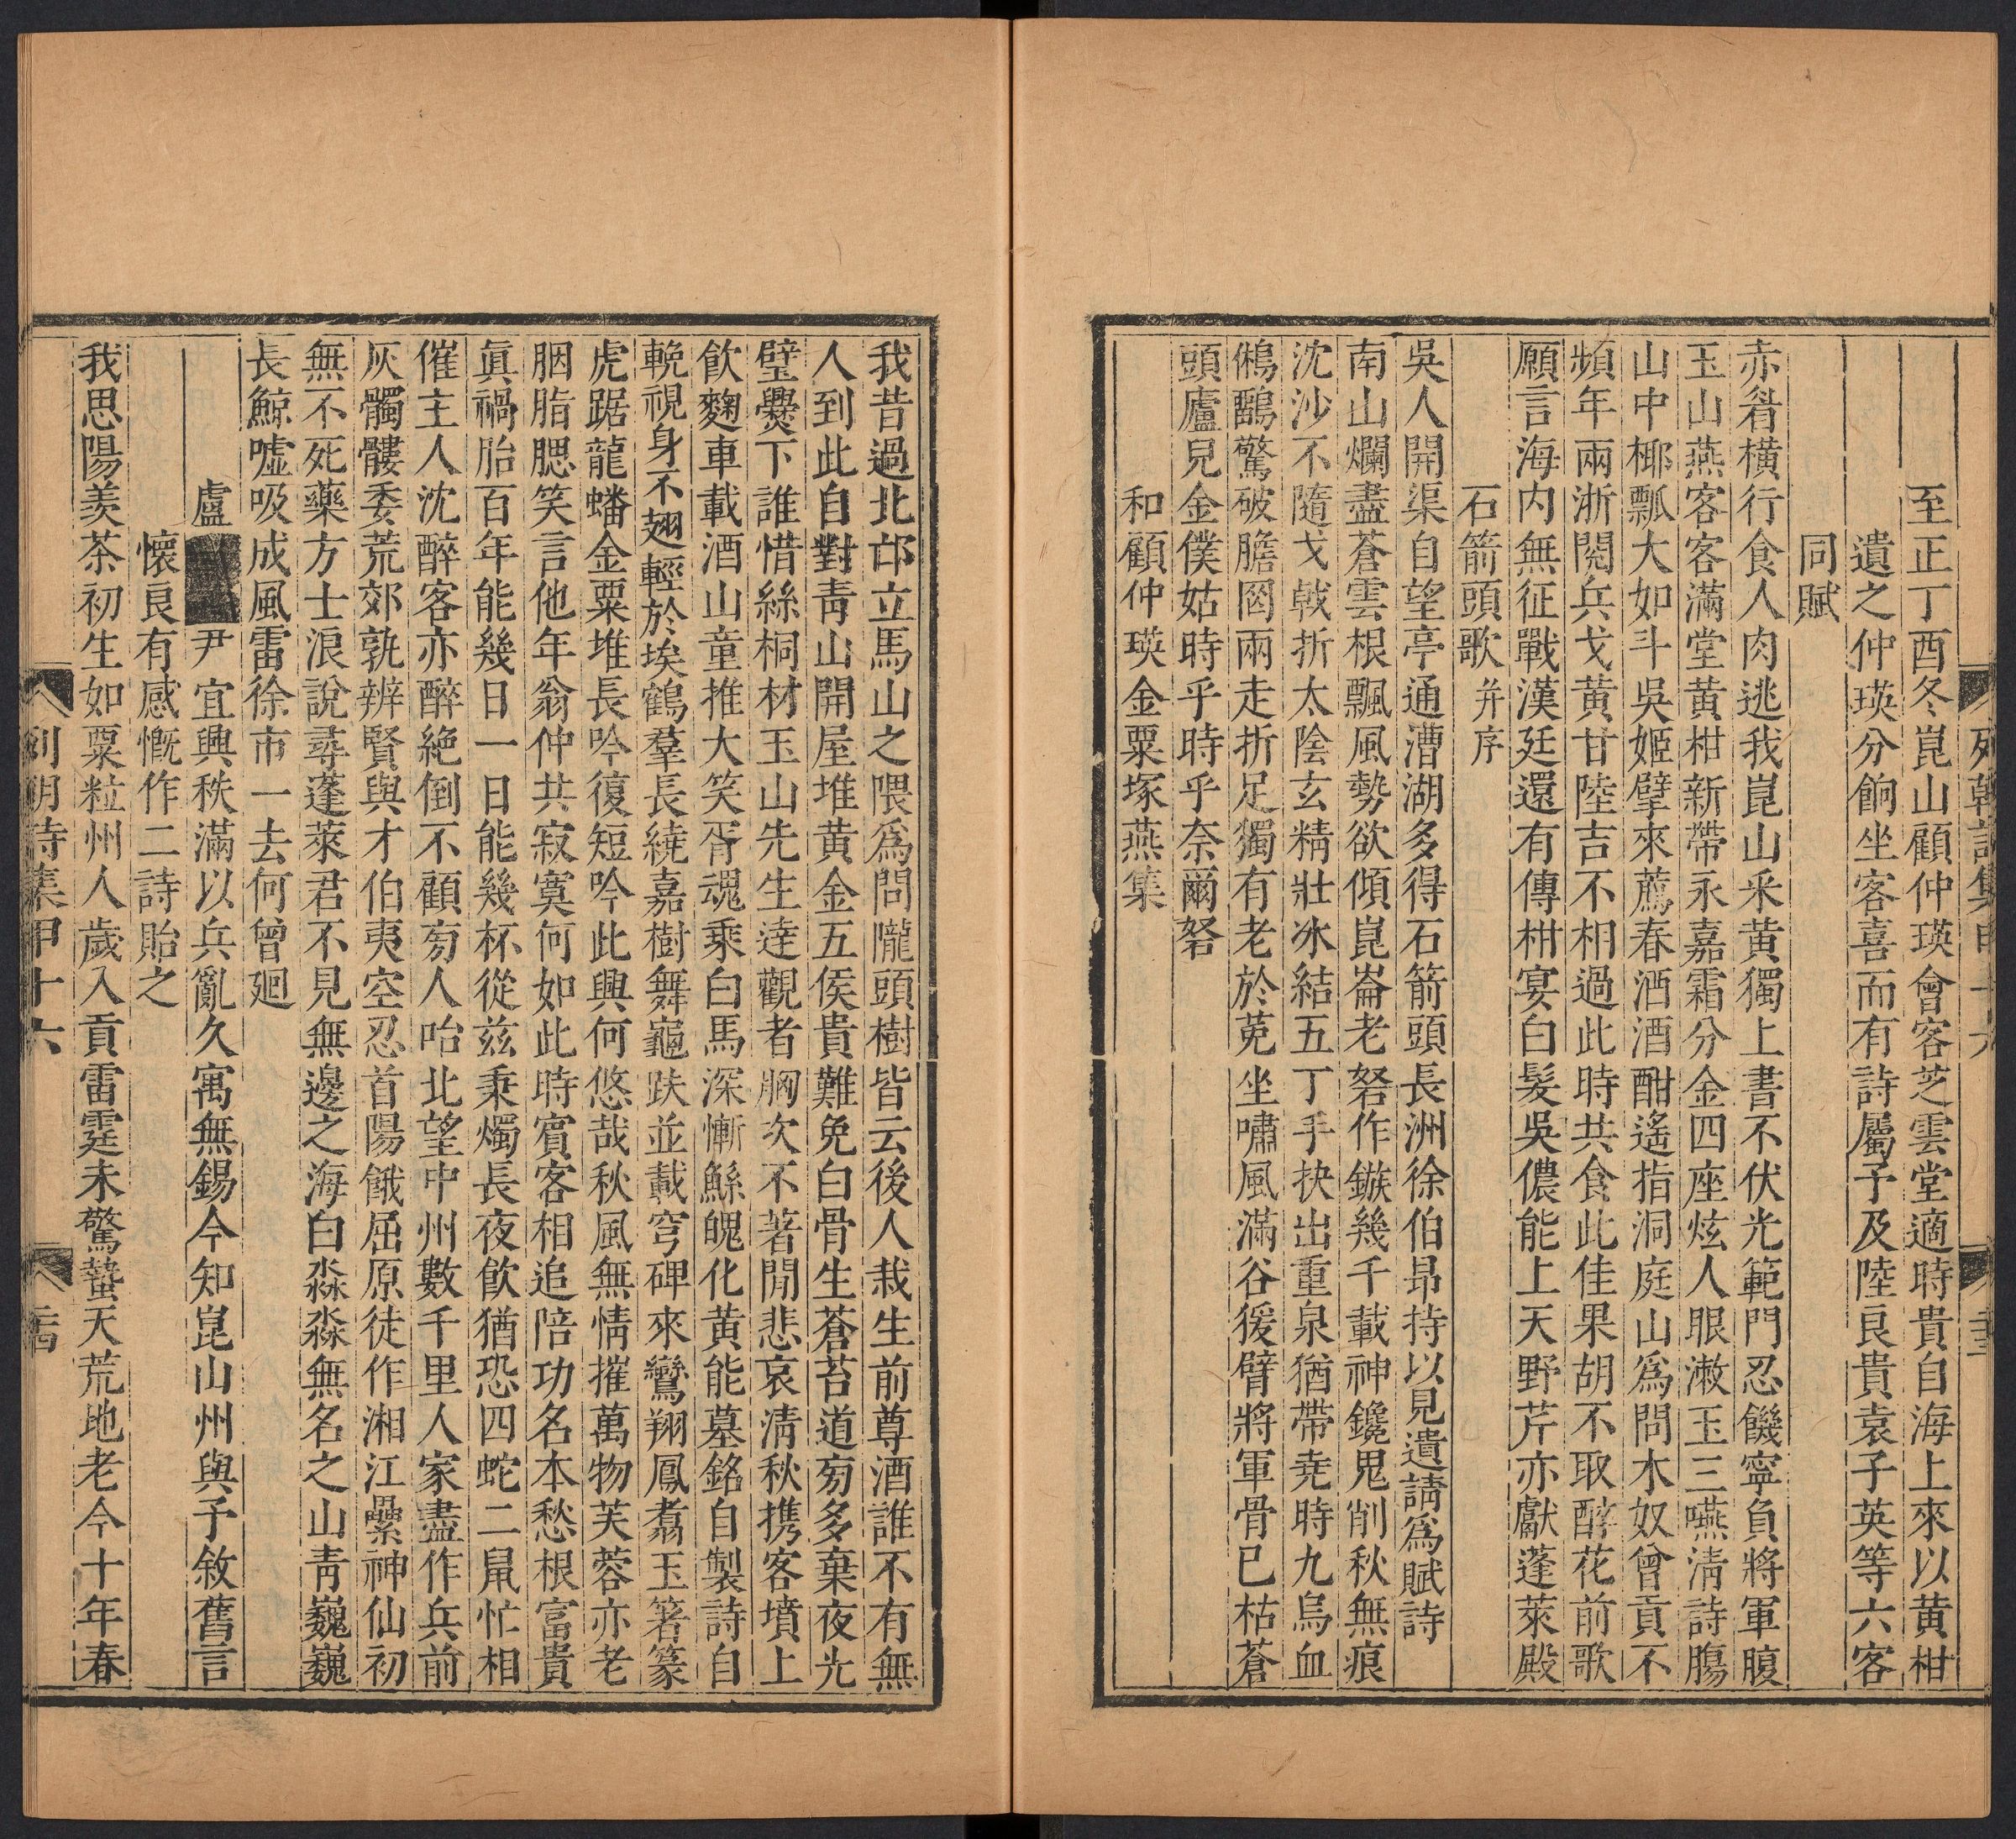 列朝詩集甲十六
至正丁酉冬崑山顧仲瑛會客芝雲堂適時貴自海上來以黃柑
遺之仲瑛分餉坐客喜而有詩屬予及陸良貴袁子英等六客
同賦
赤眉橫行食人肉逃我崑山釆黃獨上書不伏光範門忍饑寧負將軍腹
玉山燕客客滿堂黃柑新帶永嘉霜分金四座炫人眼漱玉三嚥淸詩腸
山中椰瓢大如斗吳姬擘來薦春酒酒酣遙指洞庭山爲問木奴曾貢不
頻年兩浙閱兵戈黃甘陸吉不相過此時共食此佳果胡不取醉花前歌
願言海內無征戰漢廷還有傳柑宴白髮吳儂能上天野芹亦獻蓬萊殿
石箭頭歌 并序
吳人開渠自望亭通漕湖多得石箭頭長洲徐伯昂持以見遺請爲賦詩
南山爛盡蒼雲根飄風勢欲傾崑崙老砮作鏃幾千載神鑱鬼削秋無痕
沈沙不隨戈戟折太陰玄精壯冰結五丁手抉出重泉猶帶堯時九烏血
鵂鶹驚破膽罔兩走折足獨有老於菟坐嘯風滿谷猨臂將軍骨已枯蒼
頭廬兒金僕姑時乎時乎奈爾砮
和顧仲瑛金粟塚燕集
我昔過北邙立馬山之隈爲問隴頭樹皆云後人栽生前尊酒誰不有無
人到此自對靑山開屋堆黃金五侯貴難免白骨生蒼苔道旁多棄夜光
璧爨下誰惜絲桐材玉山先生達觀者胸次不著閒悲哀淸秋携客墳上
飮麴車載酒山童推大笑胥魂乘白馬深慚鯀魄化黃能墓銘自製詩自
輓視身不翅輕於埃鶴羣長繞嘉樹舞龜趺並載穹碑來鸞翔鳳翥玉箸篆
虎踞龍蟠金粟堆長吟復短吟此興何悠哉秋風無情摧萬物芙蓉亦老
胭脂腮笑言他年翁仲共寂寞何如此時賓客相追陪功名本愁根富貴
眞禍胎百年能幾日一日能幾杯從玆秉燭長夜飮猶恐四蛇二鼠忙相
催主人沈醉客亦醉絕倒不顧旁人咍北望中州數千里人家盡作兵前
灰髑髏委荒郊孰辨賢與才伯夷空忍首陽餓屈原徒作湘江纍神仙初
無不死藥方士浪說尋蓬萊君不見無邊之海白淼淼無名之山靑巍巍
長鯨噓吸成風雷徐市一去何曾廻
盧 尹宜興秩滿以兵亂久寓無錫今知崑山州與予敘舊言
懷良有感慨作二詩貽之
我思陽羨茶初生如粟粒州人歲入貢雷霆未驚蟄天荒地老今十年春
列朝詩集甲十六